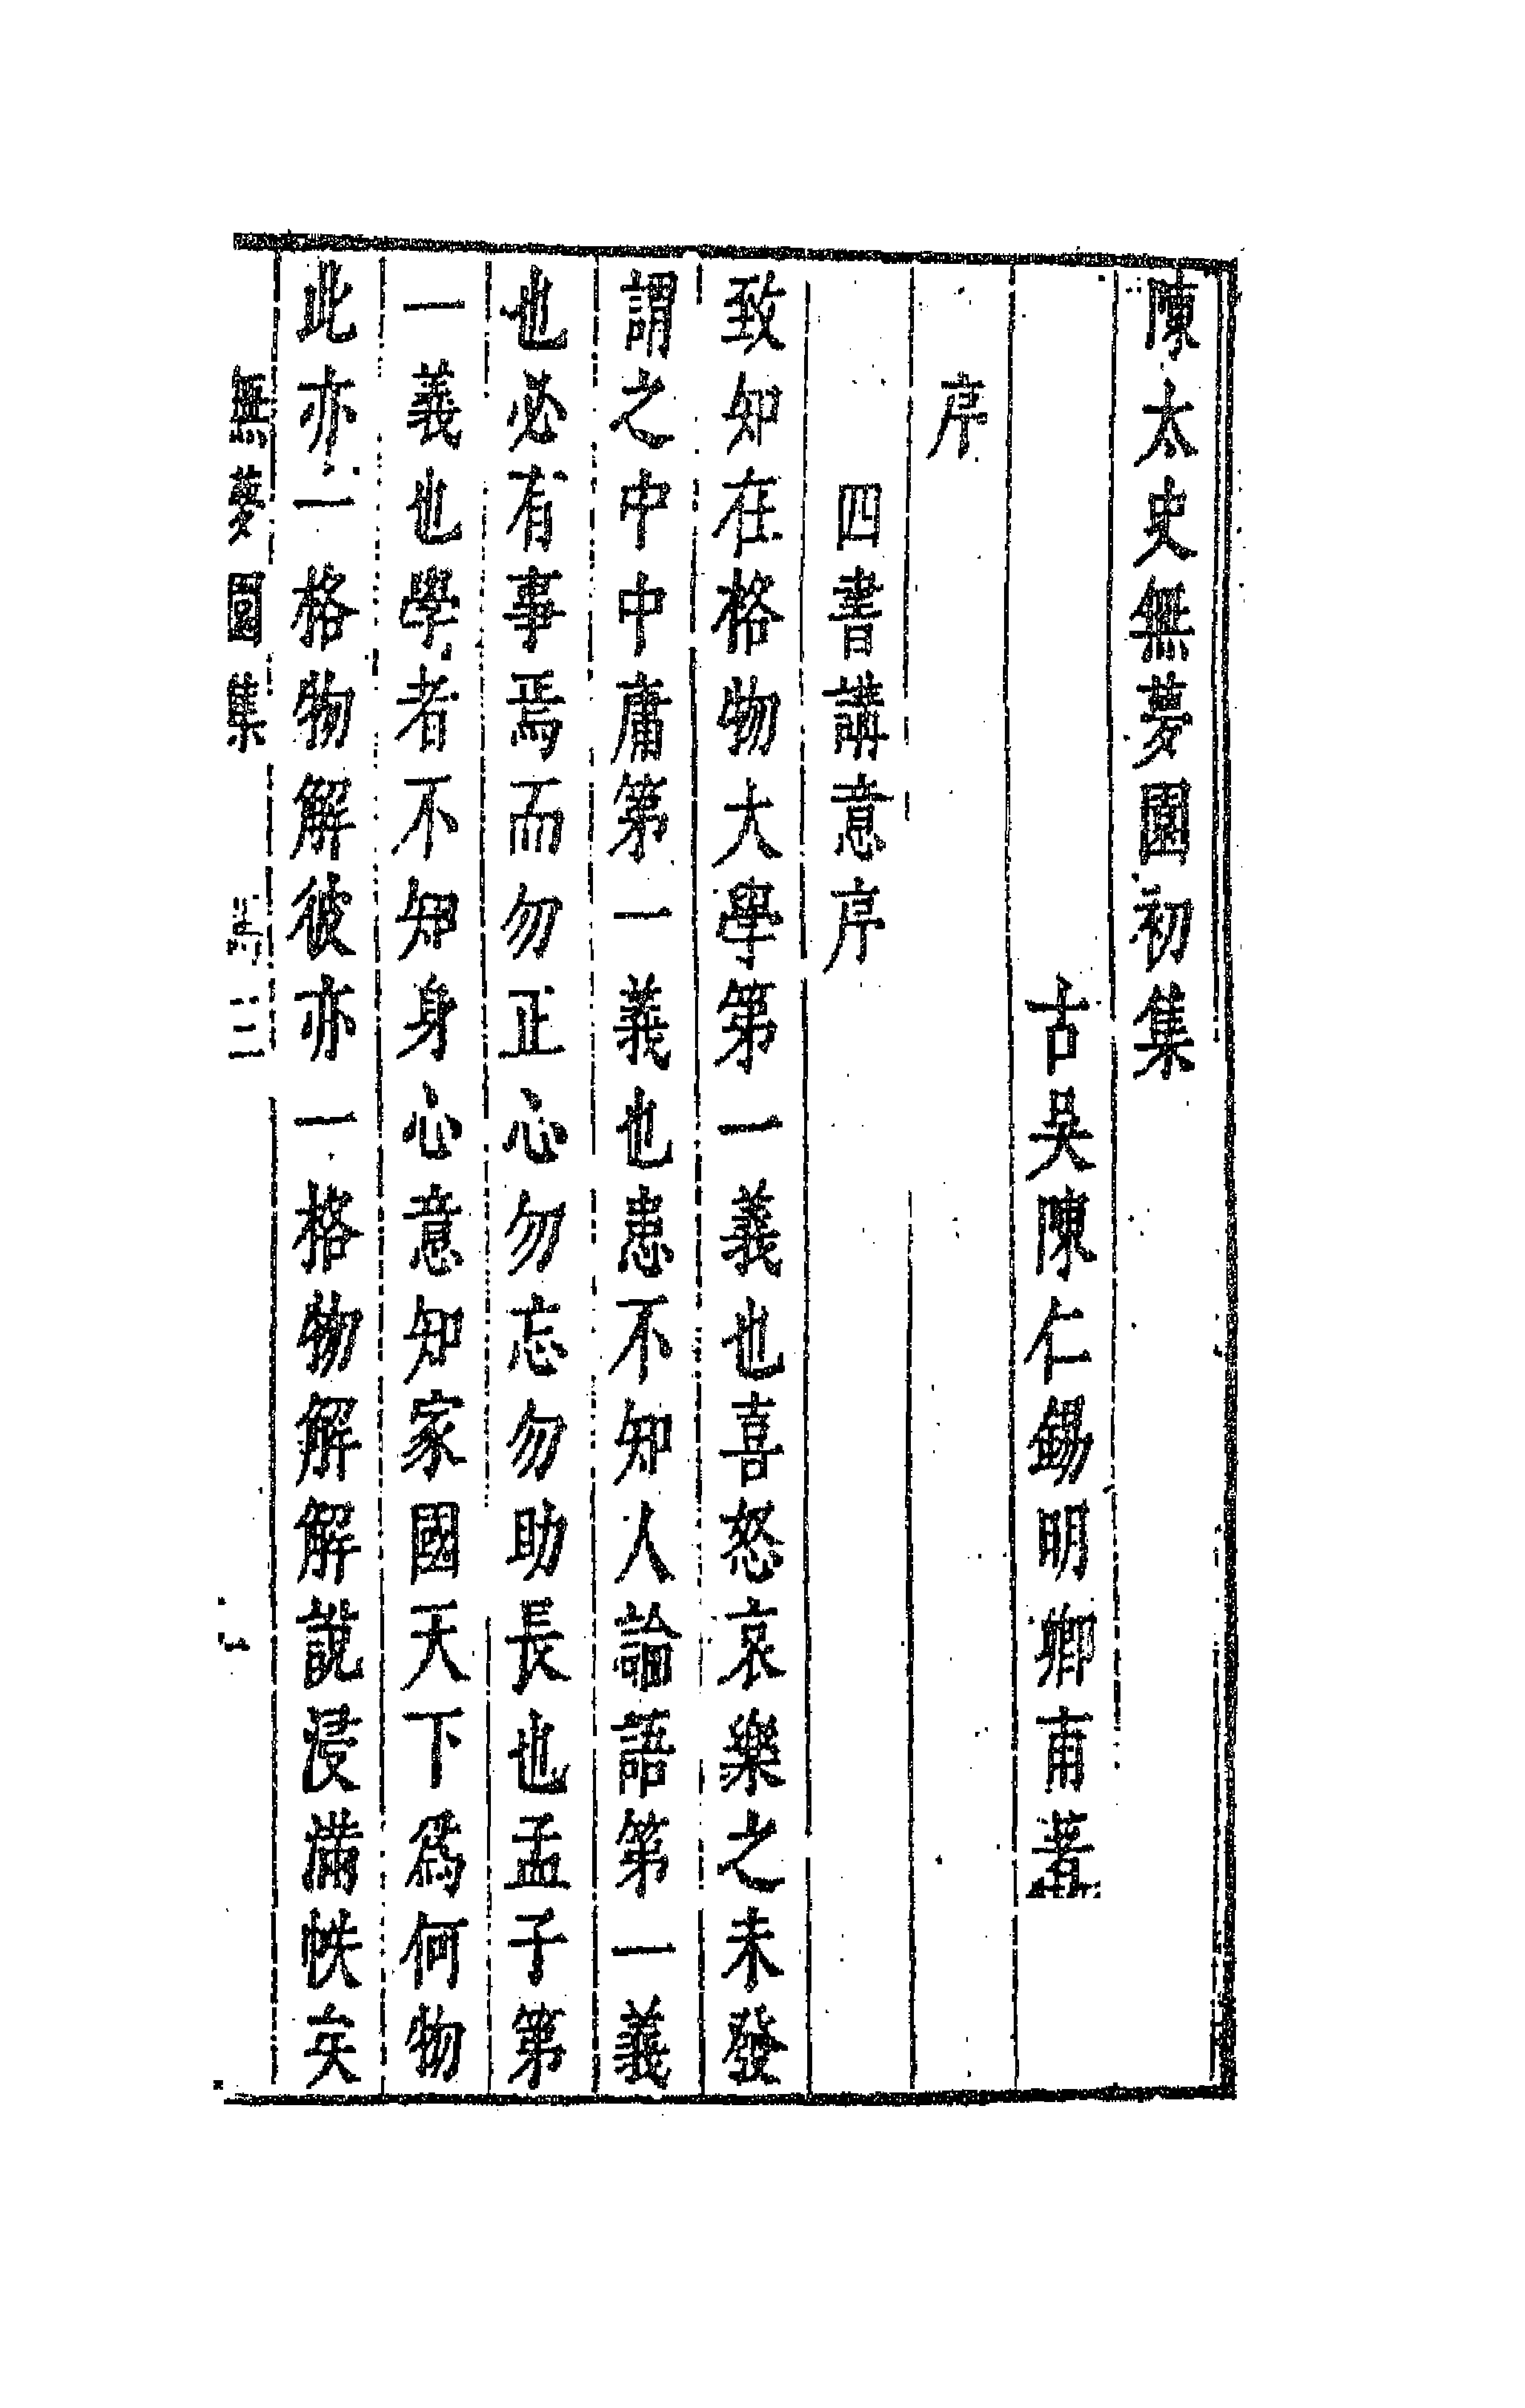 陳太史無夢園初集
古吳陳仁錫明卿甫著
序
四書講意序
致知在格物大學第一義也喜怒哀樂之未發
謂之中中庸第一義也患不知人論語第一義
也必有事焉而勿正心勿忘勿助長也孟子第
一義也學者不知身心意知家國天下為何物
此亦一格物解彼亦一格物解解說浸滿帙矣
無夢園集